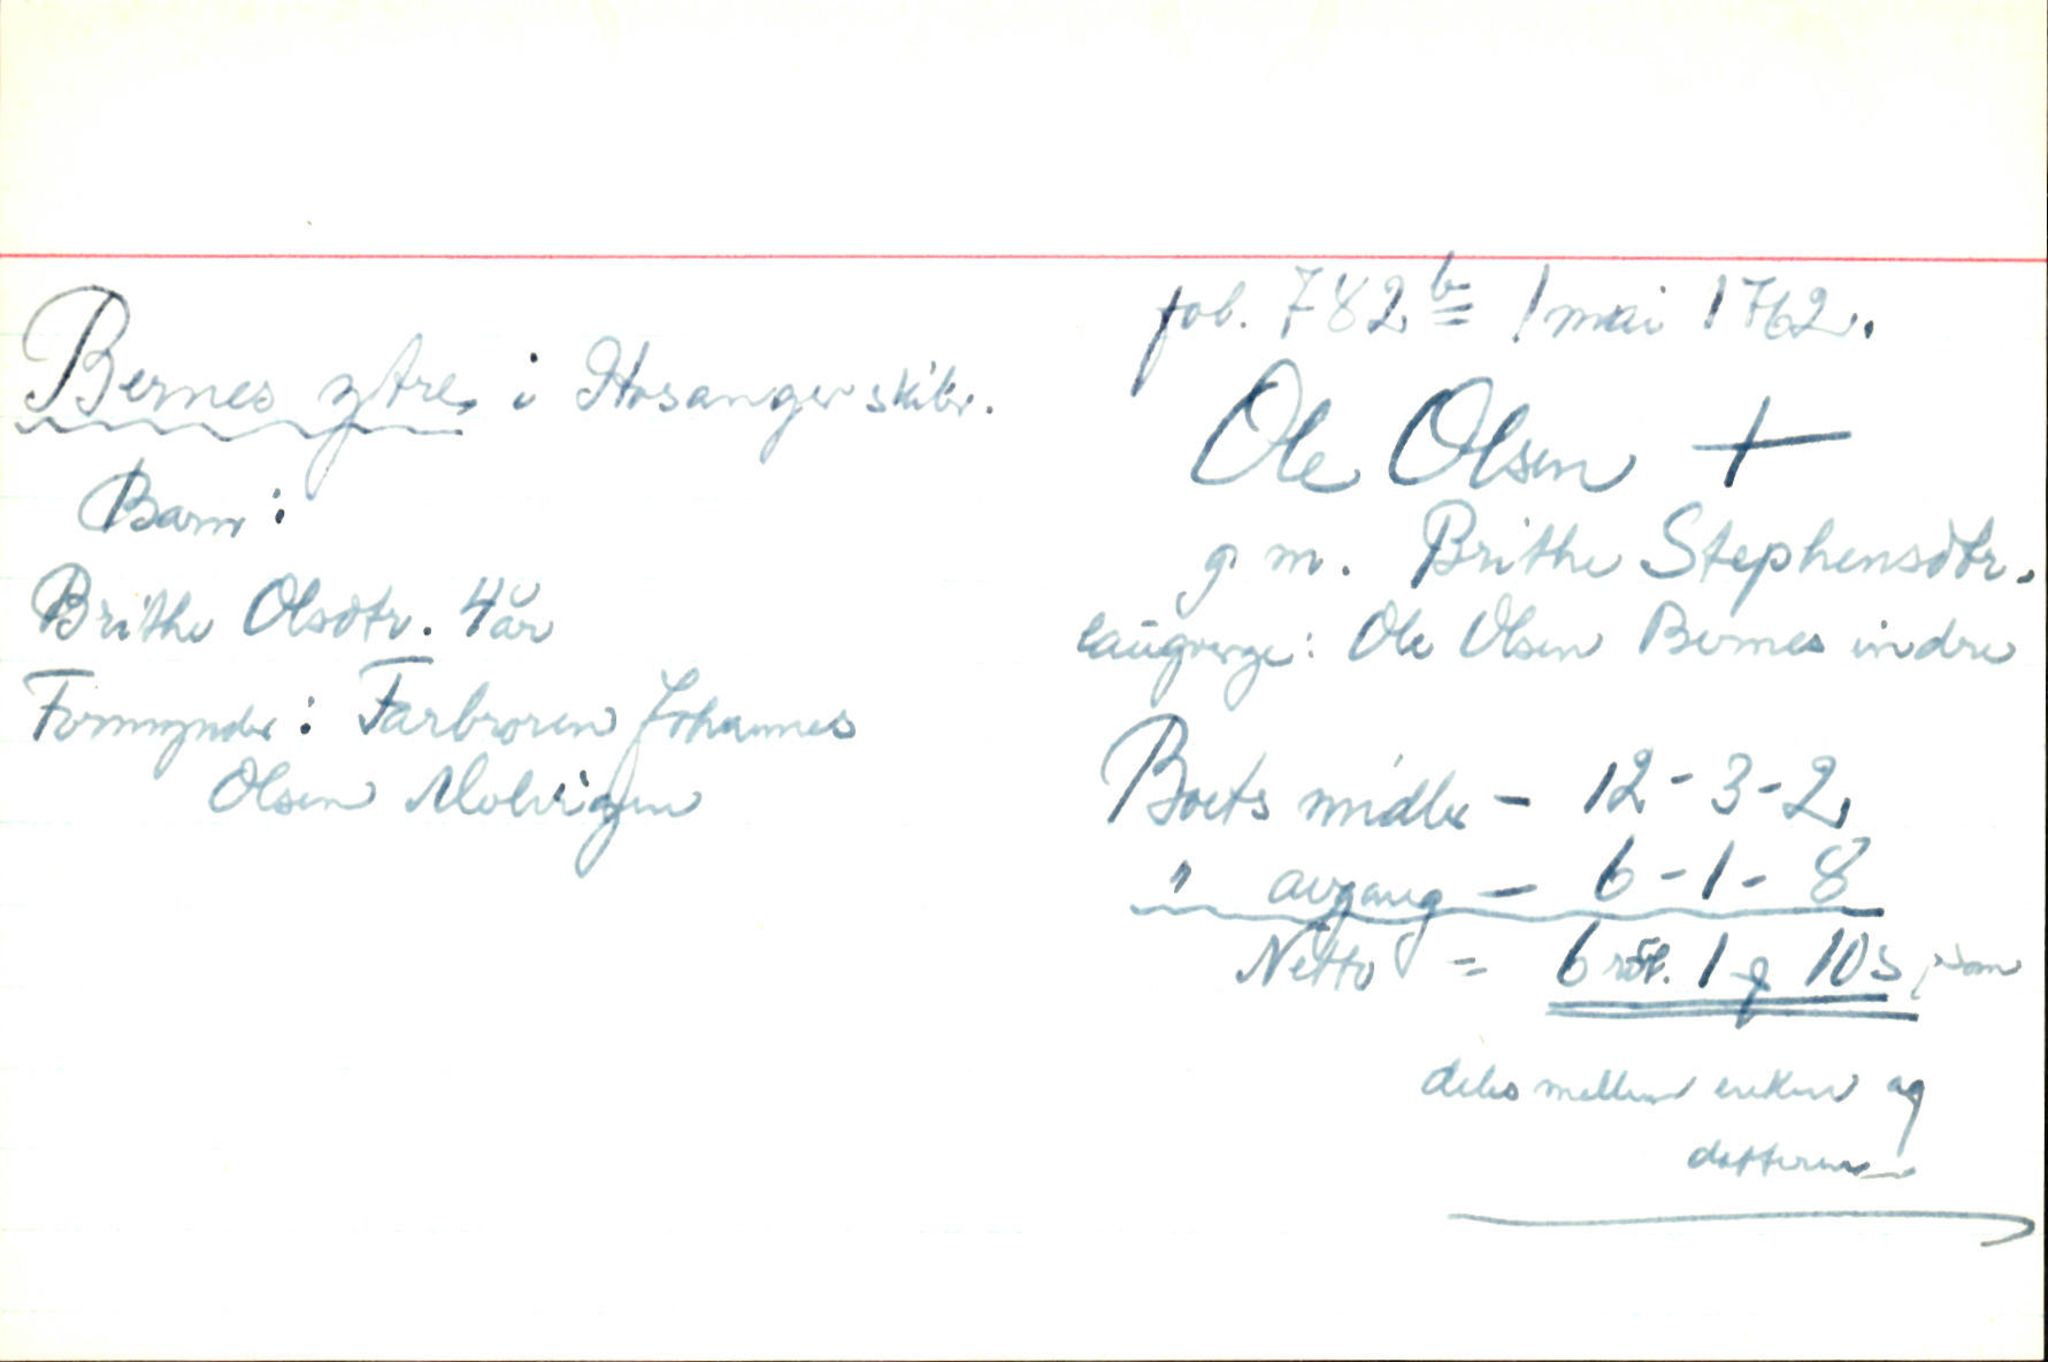 Bernes ytre, i Hosanger skibr.
Barn:
Brithe Olsdtr. 4 år
Formynder: Farbroren Johannes
Olsen Molvigen
fol. 782 b 1 mai 1762.
Ole Olsen +
g. m. Brithe Stephensdtr.
laugverge: Ole Olsen Bernes indre
Boets midler - 12 - 3 - 2
" avgang - 6 - 1 - 8
Netto = 6 rdl. 1 ϙ 10 s, som
deles mellem enken og
datteren